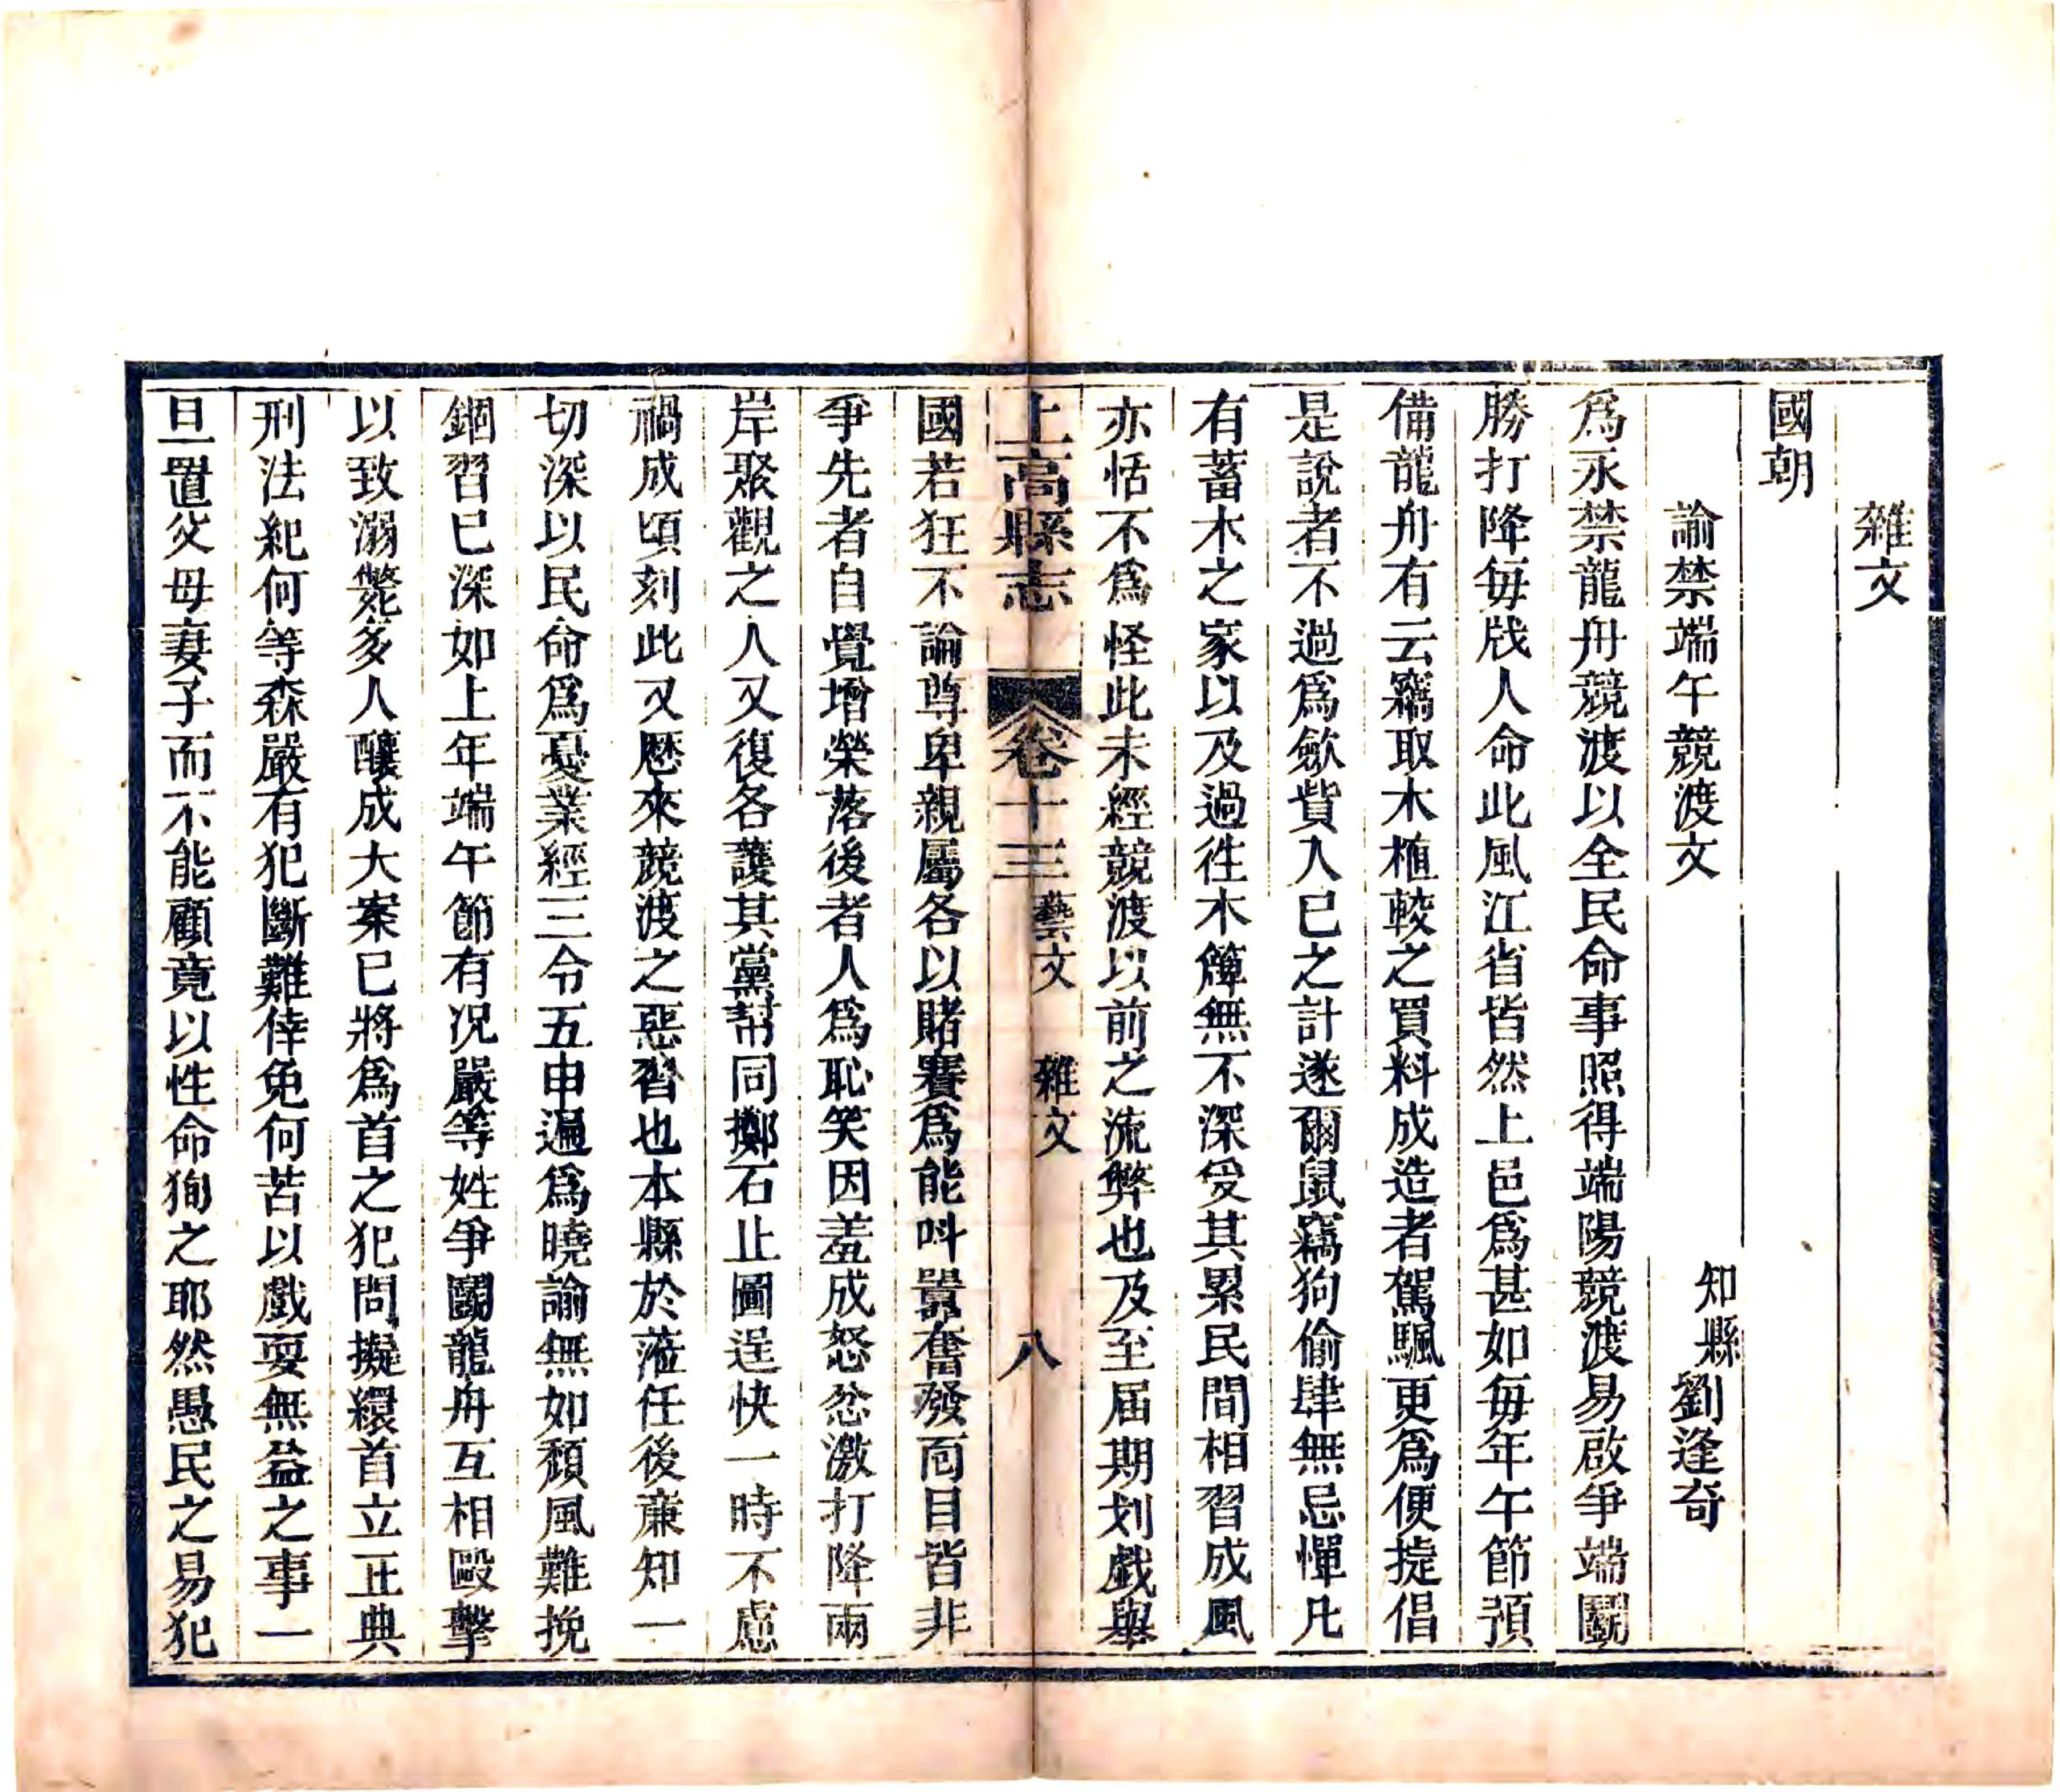 雜文
國朝
諭禁端午競渡文
知縣劉逢奇
爲永禁龍舟競渡以全民命事照得端陽競渡易啟爭端鬭
勝打降每戕人命此風江省皆然上邑爲甚如每年午節預
備龍舟有云竊取木植較之買料成造者駕颿更爲便㨗倡
是說者不過爲歛貲入已之計遂爾鼠竊狗偷肆無忌憚凡
有蓄木之家以及過徃木簰無不深受其累民間相習成風
亦恬不爲怪此未經競渡以前之流弊也及至届期划戯舉
上高縣志 卷十三 藝文 雜文 八
國若狂不論尊卑親屬各以賭賽爲能呌囂奮發面目皆非
爭先者自覺增榮落後者人爲恥笑因羞成怒忿激打降兩
岸聚觀之人又復各護其黨幇同擲石止圖逞快一時不慮
禍成頃刻此又歷來競渡之惡習也本縣於蒞任後亷知一
切深以民命爲憂業經三令五申遍爲曉諭無如頹風難挽
錮習已深如上年端午節有况嚴等姓爭鬭龍舟互相毆擊
以致溺斃多人釀成大案已將爲首之犯問擬繯首立正典
刑法紀何等森嚴有犯斷難倖免何苦以戲耍無益之事一
旦置父母妻子而不能顧竟以性命狥之耶然愚民之易犯